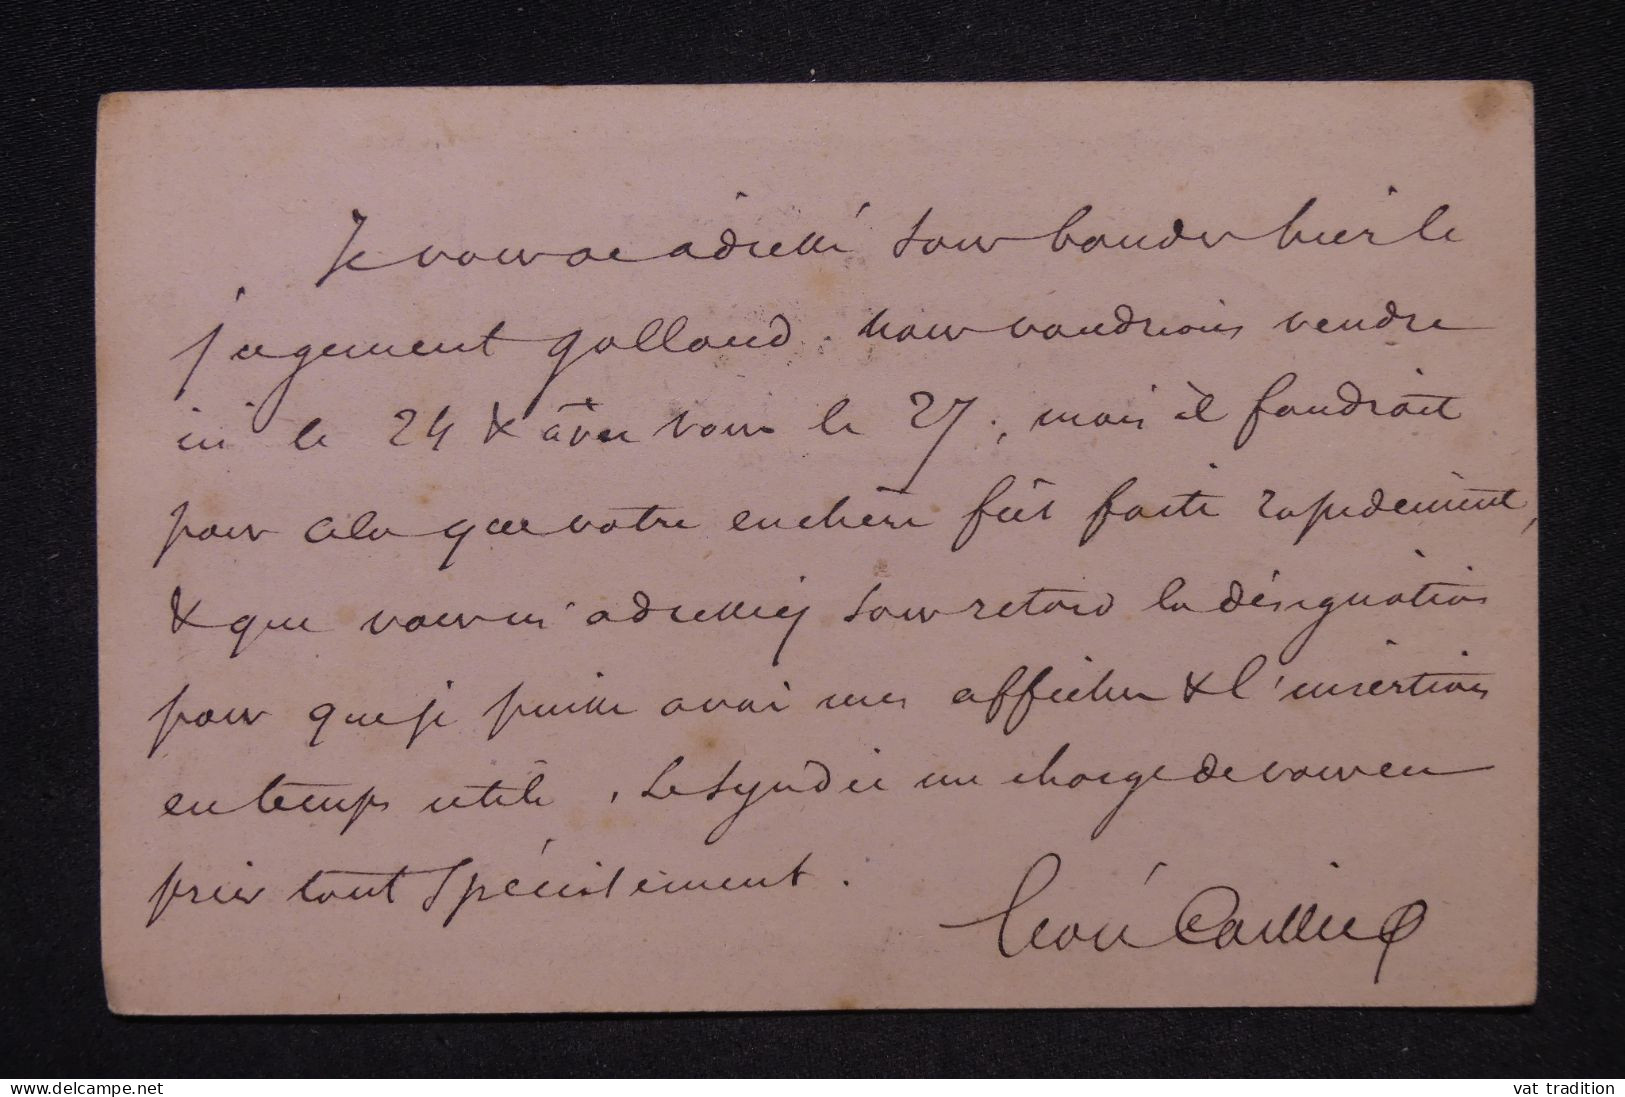 Je vous ai adressé sous bande hier le
jugement Galland. Nous voudrions vendre
ici le 24 & avec vous le 27, mais il faudrait
pour cela que votre enchère fût faite rapidement,
& que vous m'adressiez sans retard la désignation
pour que je puisse avoir mes affiches & l'insertion
en temps utile. Le Syndic me charge de vous en
prier tout spécialement.
Léon Caillie
www.delcampe.net
vat tradition